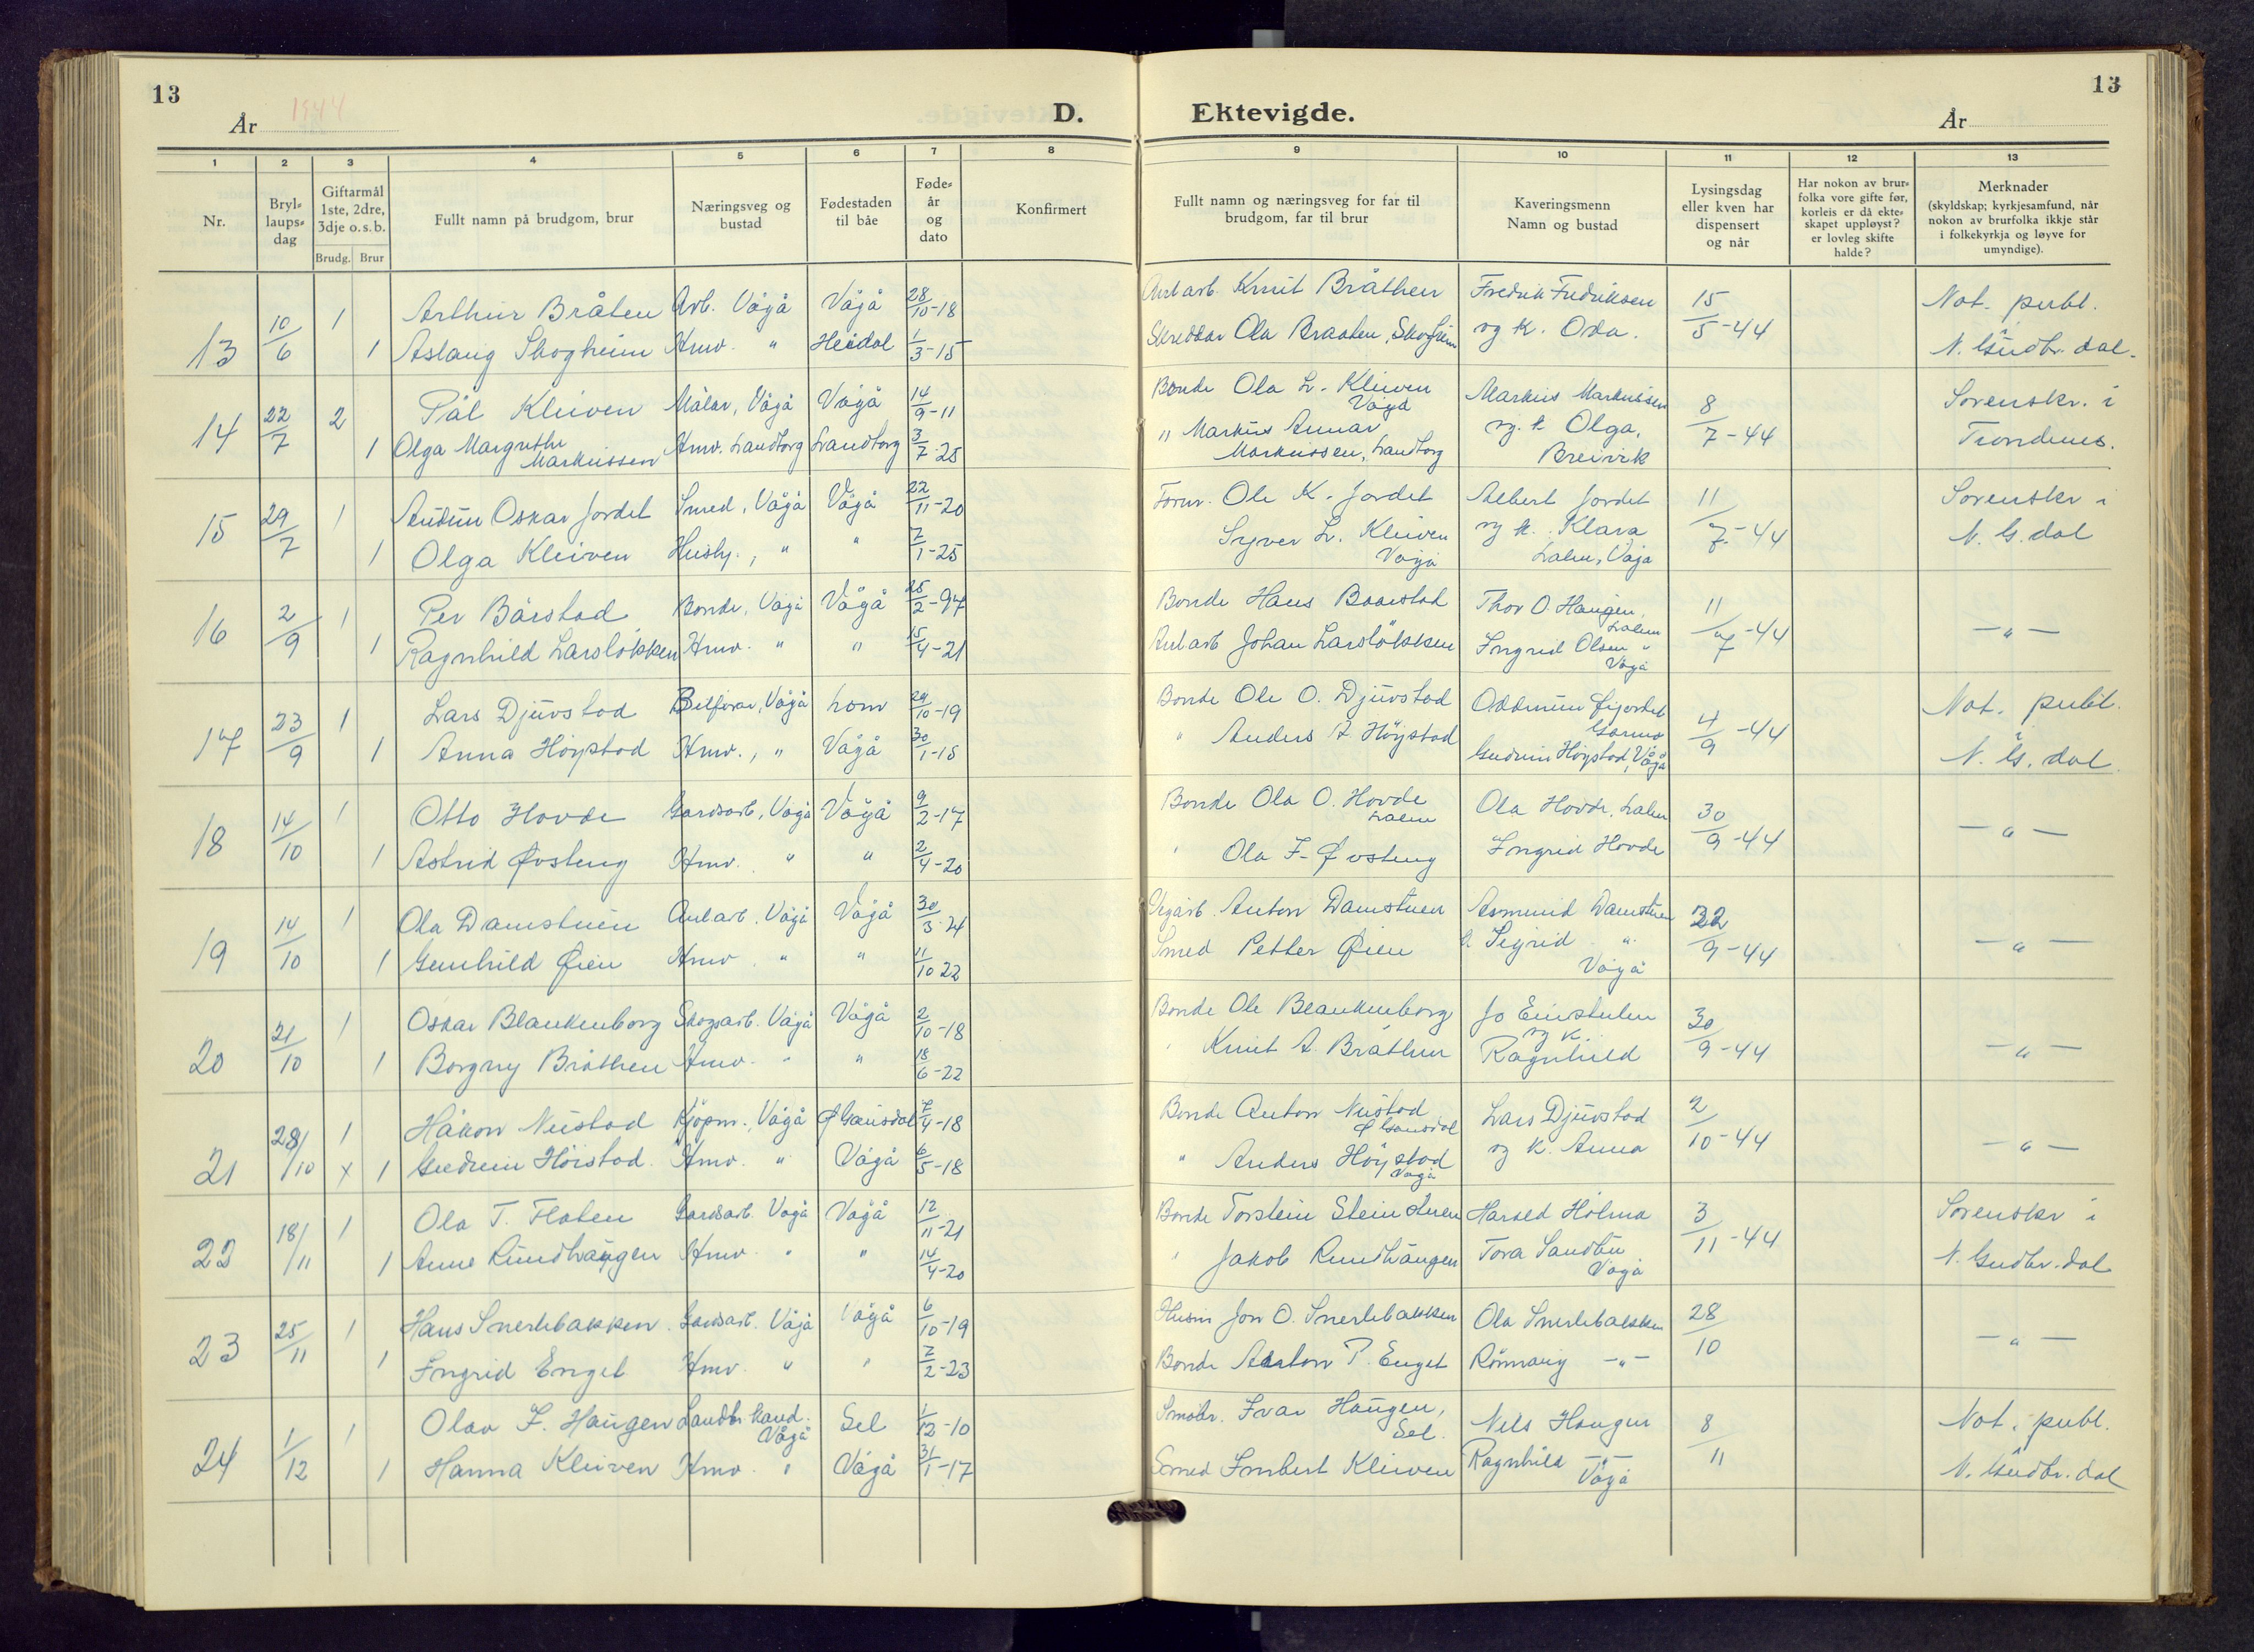 13
År 1944
D.
Ektevigde.
År
13
1 2 3 4 5 6 7 8 9 10 11 12 13
Nr.
Bryl-laups-dag
Giftarmål 1ste, 2dre, 3dje o.s.b.
Brudg. Brur
Fullt namn på brudgom, brur
Næringsveg og bustad
Fødestaden til båe
Føde-år og dato
Konfirmert
Fullt namn og næringsveg for far til brudgom, far til brur
Kaveringsmenn Namn og bustad
Lysingsdag eller kven har dispensert og når
Har nokon av brur-folka vore gifte før, korleis er då ekte-skapet uppløyst? er lovleg skifte halde?
Merknader (skyldskap; kyrkjesamfund, når nokon av brurfolka ikkje står i folkekyrkja og løyve for umyndige).
13 10/6 1 Arthur Bråten Arb. Vågå Vågå 28/10-18 Anl.arb. Knut Bråthen Fredrik Fredriksen 15/5-44 Not. publ.
1 Aslaug Skogheim Hmv. " Heidal 1/3-15 Ola Braaten, Skogheim og k. Oda. N. Gudbr. dal.
14 22/7 2 Pål Kleiven Målar, Vågå Vågå 14/9-11 Bonde Ola L. Kleiven Vågå Markus Markussen 8/7-44 Sorenskr. i
1 Olga Margrethe Markussen Hmv. Sandtorg Sandtorg 3/7-25 " Markus Annar Markussen, Sandtorg og k. Olga, Breivik Trondenes.
15 29/7 1 Audun Oskar Jordet Smed, Vågå Vågå 22/11-20 Ole K. Jordet Albert Jordet 11/7-44 Sorenskr i
1 Olga Kleiven Hushj., " " 7/1-25 Syver L. Kleiven Vågå og k. Klara Lalm, Vågå N. G. dal
16 2/9 1 Per Bårstad Bonde, Vågå Vågå 25/2-97 Bonde Hans Baarstad Thor O. Haugen, Lalm 11/7-44 — " —
1 Ragnhild Larsløkken Hmv. " " 15/4-21 Anl.arb Johan Larsløkken Ingrid Olsen " Vågå
17 23/9 1 Lars Djuvstad Bilførar, Vågå Lom 29/10-19 Bonde Ole O. Djuvstad Oddmun Øigardet Garmo 4/9-44 Not. publ.
1 Anna Høystad Hmv., " Vågå 30/1-15 " Anders A Høystad Gudrun Høystad, Vågå N. G. dal
18 14/10 1 Otto Hovde Gardsarb, Vågå Vågå 9/2-17 Bonde Ola O. Hovde Lalm Ola Hovde, Lalm 30/9-44 — " —
1 Astrid Øvsteng Hmv. " " 2/4-20 " Ola I. Øvsteng Ingrid Hovde
19 14/10 1 Ola Damstuen Anl.arb. Vågå Vågå 30/3-24 Vegarb. Anton Damstuen Asmund Damstuen 22/9-44 — " —
1 Gunhild Øien Hmv. " " 11/10 22 Smed Petter Øien Sigrid " Vågå
20 21/10 1 Oskar Blankenborg Skogsarb. Vågå Vågå 2/10-18 Bonde Ole Blankenborg Jo Einstulen 30/9-44 — " —
1 Borgny Bråthen Hmv. " " 18/6-22 " Knut A. Bråthen og k. Ragnhild
21 28/10 1 Håkon Nustad Kjøpm., Vågå Ø Gausdal 7/4-18 Bonde Anton Nustad Ø Gausdal Lars Djuvstad 2/10-44 — " —
x 1 Gudrun Høistad. Hmv. " Vågå 6/5-18 " Anders Høystad Vågå og k. Anna
22 18/11 1 Ola T. Flaten Gardsarb. Vågå Vågå 12/11-21 Bonde Torstein Steinstuen Harald Holmo 3/11-44 Sorenskr i
1 Anne Rundhaugen Hmv. " " 14/4-20 " Jakob Rundhaugen Tora Sandbu Vågå N. Gudbr. dal
23 25/11 1 Hans Snerlebakken Gardsarb. Vågå Vågå 6/10-19 Husm Jon O. Snerlebakken Ola Snerlebakken 28/10 — " —
1 Ingrid Enget Hmv. " " 7/2-23 Bonde Aaston P. Enget Rønnaug — " —
24 1/12 1 Olav I. Haugen Landbr.kand. Vågå Sel 1/12-10 Småbr. Ivar Haugen, Sel. Nils Haugen 8/11 Not. publ.
1 Hanna Kleiven Hmv. " Vågå 31/1-17 Smed Imbert Kleiven Ragnhild — " — Vågå N. Gudbr. dal